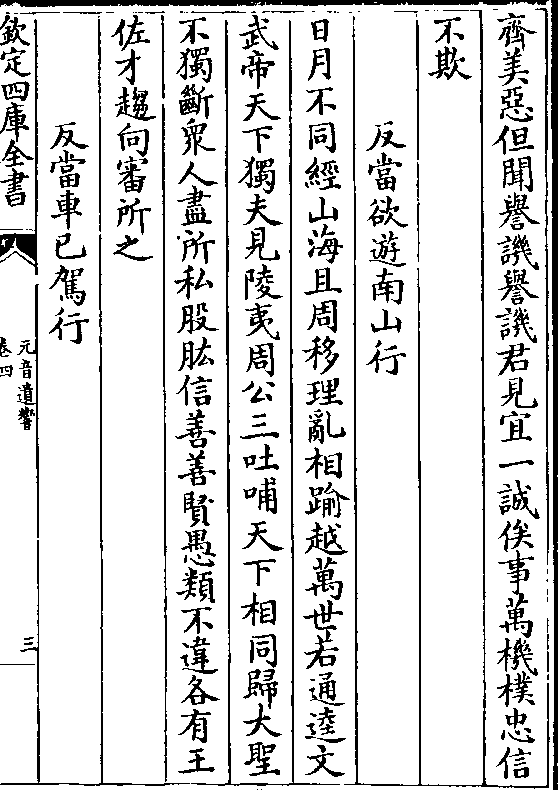 齊美惡但聞譽譏譽譏君見宜一誠俟事萬機樸忠信
不欺
反當欲遊南山行
日月不同經山海且周移理亂相踰越萬世若通逵文
武帝天下獨夫見陵夷周公三吐哺天下相同歸大聖
不獨斷衆人盡所私股肱信善善賢愚類不違各有王
佐才趨向審所之
反當車已駕行
欽定四庫全書
元音遺響
卷四
三